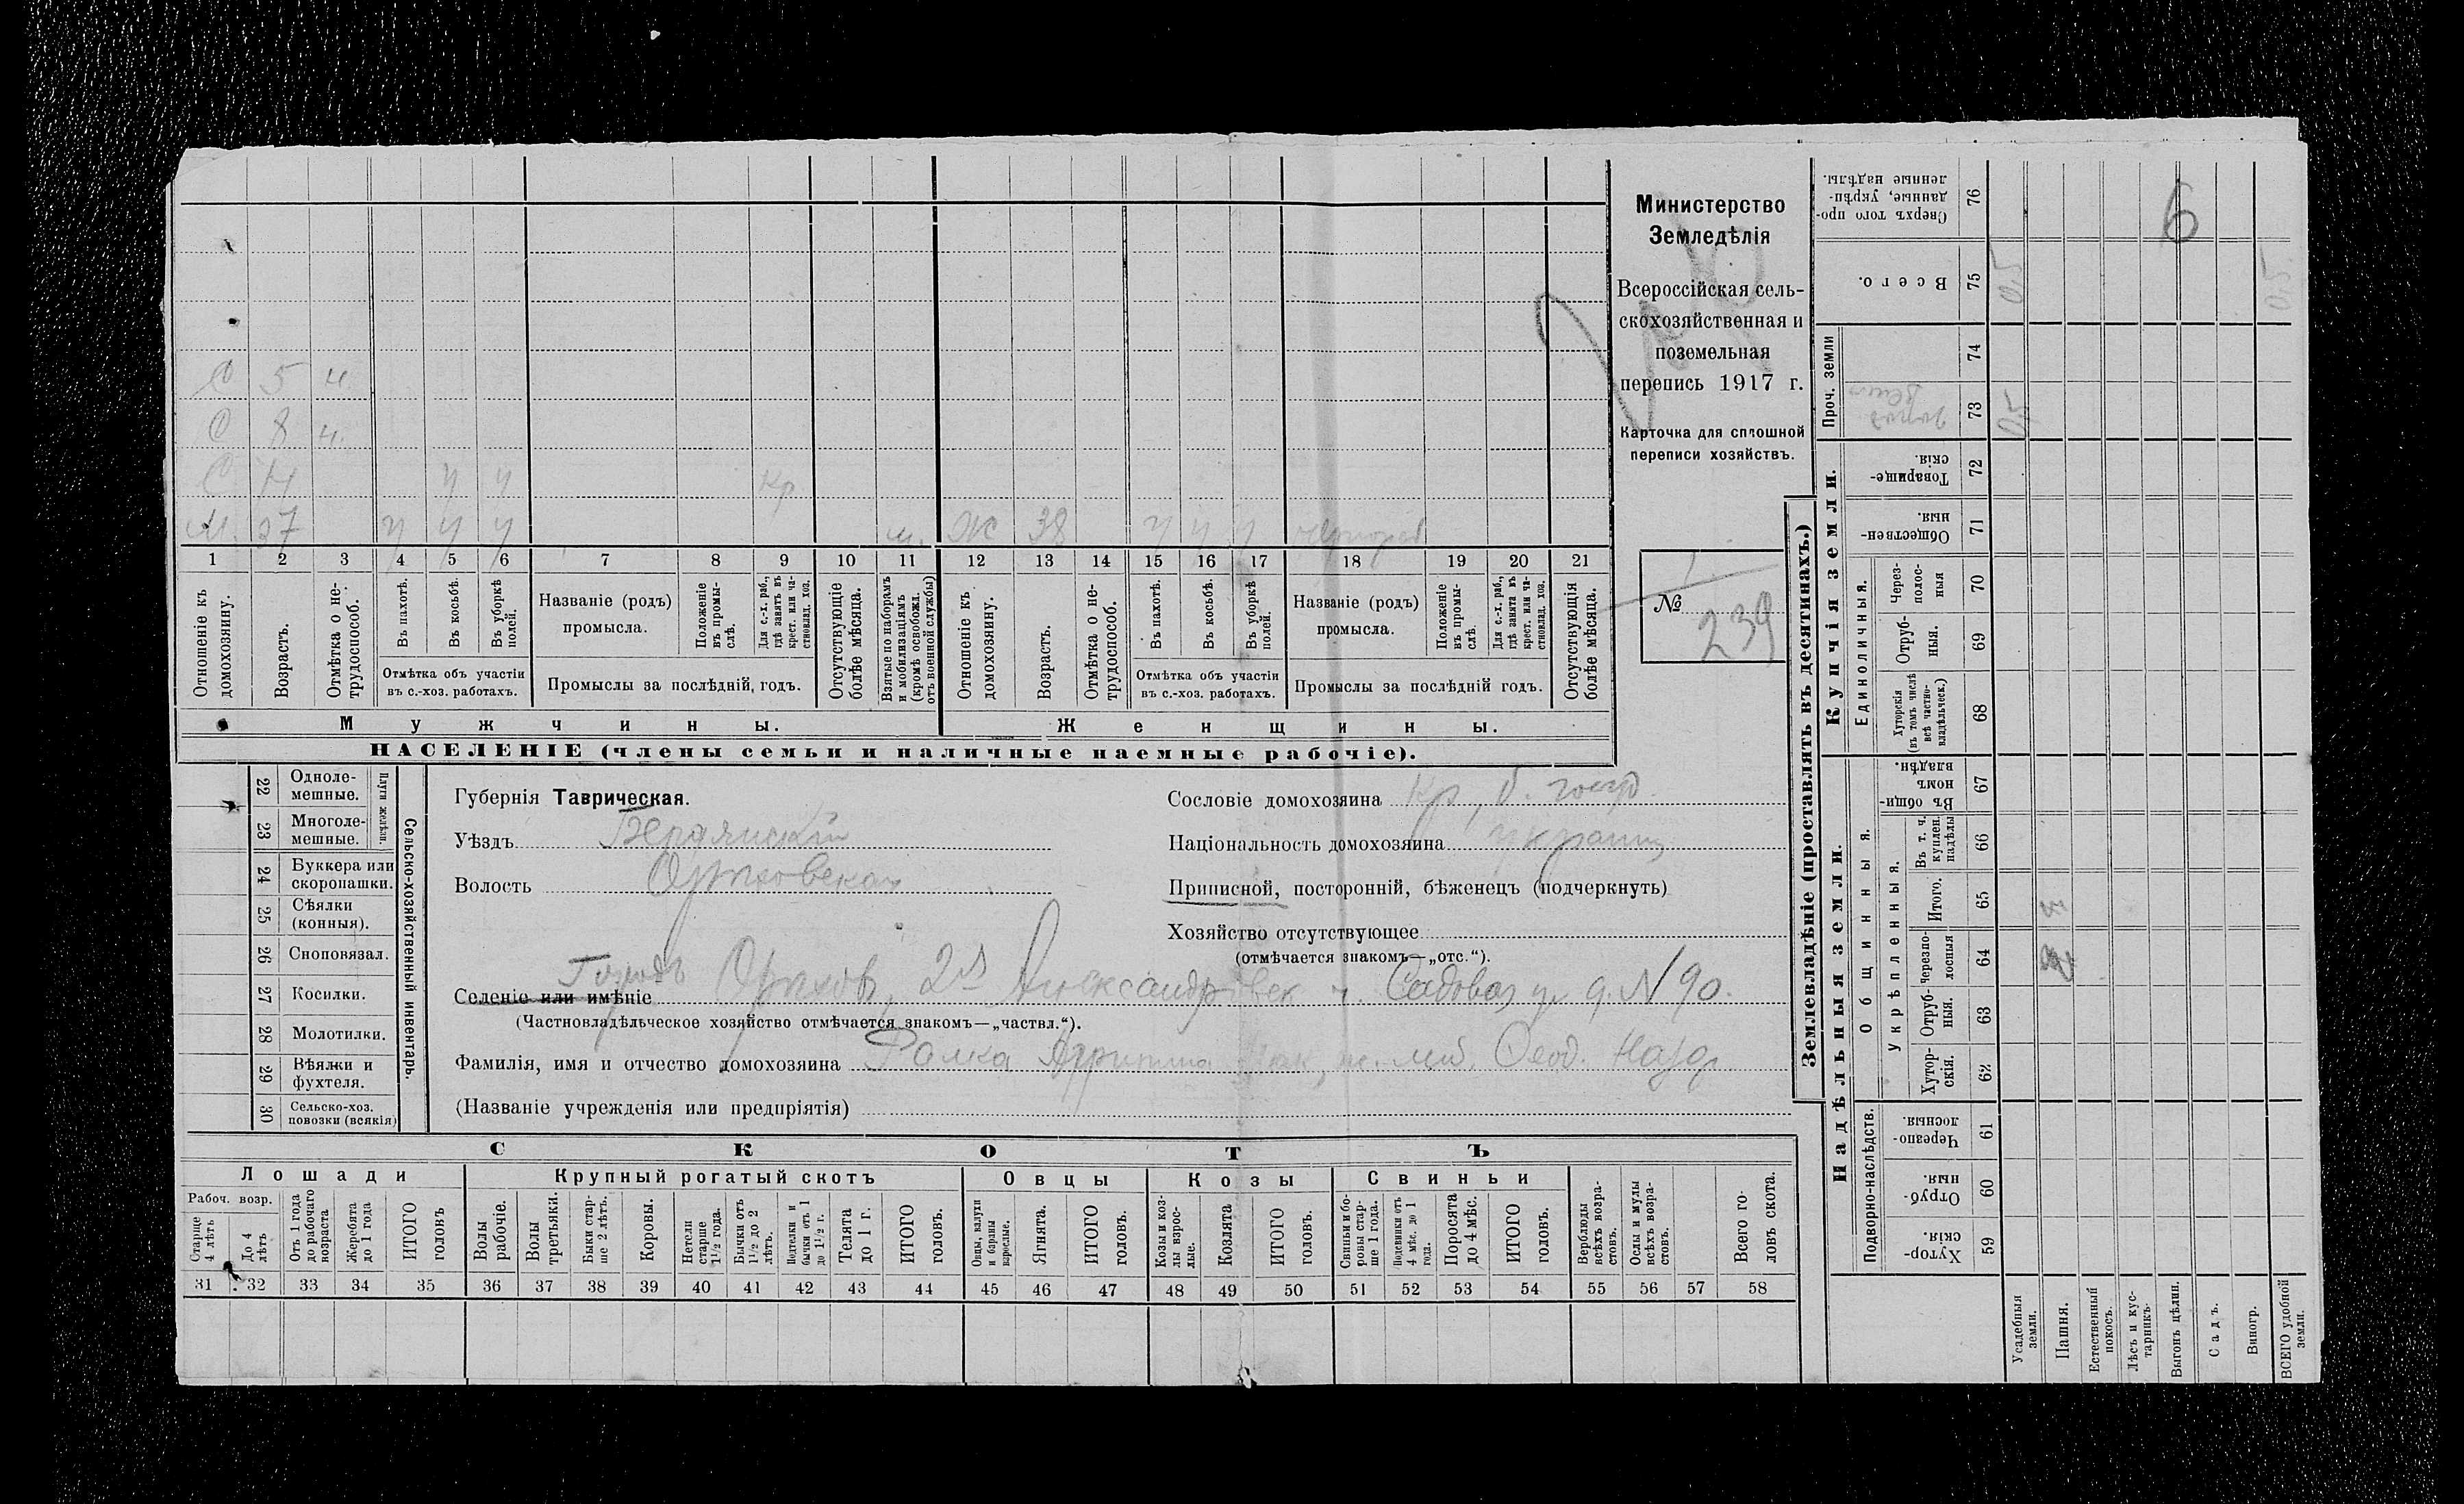 С 5 н.
С 8 н.
С 14 У У кр
М. 37 У У У м. Ж 38 У У У
1 2 3 4 5 6 7 8 9 10 11 12 13 14 15 16 17 18 19 20 21
Отношеніе къ домохозяину.
Возрастъ.
Отмѣтка о не-трудоспособ.
Въ пахотѣ.
Въ косьбѣ.
Въ уборкѣ полей.
Отмѣтка объ участіи
въ с.-хоз. работахъ.
Названіе (родъ)
промысла.
Положеніе въ промы-слѣ.
Для с.-х. раб., гдѣ занятъ въ крест. или ча-стновлад. хоз.
Промыслы за послѣдній годъ.
Отсутствующіе болѣе мѣсяца.
Взятые по наборамъ и мобилизаціямъ (кромѣ освобожд. отъ военной службы)
Отношеніе къ домохозяину.
Возрастъ.
Отмѣтка о не-трудоспособ.
Въ пахотѣ.
Въ косьбѣ.
Въ уборкѣ полей.
Отмѣтка объ участіи
въ с.-хоз. работахъ.
Названіе (родъ)
промысла.
Положеніе въ промы-слѣ.
Для с.-х. раб., гдѣ занята въ крест. или ча-стновлад. хоз.
Промыслы за послѣдній годъ.
Отсутствующія болѣе мѣсяца.
Мужчины.
Женщины.
НАСЕЛЕНІЕ (члены семьи и наличные наемные рабочіе).
Министерство
Земледѣлія
Всероссійская сель-
скохозяйственная и
поземельная
перепись 1917 г.
Карточка для сплошной
переписи хозяйствъ.
№ 239
22 Одноле-мешные.
23 Многоле-мешные.
Плуги желѣзн.
24 Буккера или скоропашки.
25 Сѣялки (конныя).
26 Сноповязал.
27 Косилки.
28 Молотилки.
29 Вѣялки и фухтеля.
30 Сельско-хоз. повозки (всякія)
Сельско-хозяйственный инвентарь.
Губернія Таврическая.
Уѣздъ Бердянскій
Волость Орѣховская
Сословіе домохозяина Кр,
Національность домохозяина украин
Приписной, посторонній, бѣженецъ (подчеркнуть)
Хозяйство отсутствующее
(отмѣчается знакомъ—„отс.“).
Городъ
Селеніе или имѣніе Орѣховъ, 2я Александровск ч. Садовая ул д. N 90.
(Частновладѣльческое хозяйство отмѣчается знакомъ—„частвл.“).
Фамилія, имя и отчество домохозяина
(Названіе учрежденія или предпріятія)
СКОТЪ
Лошади
Рабоч. возр.
Старше 4 лѣтъ
До 4 лѣтъ
Отъ 1 года до рабочаго возраста
Жеребята до 1 года
ИТОГО головъ
Крупный рогатый скотъ
Волы рабочіе.
Волы третьяки.
Быки стар-ше 2 лѣтъ.
Коровы.
Нетели старше 1½ года.
Бычки отъ 1½ до 2 лѣтъ.
Подтелки и бычки отъ 1 до 1½ г.
Телята до 1 г.
ИТОГО головъ.
Овцы
Овцы, валухи и бараны взрослые.
Ягнята.
ИТОГО головъ.
Козы
Козы и коз-лы взрос-лые.
Козлята
ИТОГО головъ.
Свиньи
Свиньи и бо-ровы стар-ше 1 года.
Подсвинки отъ 4 мѣс. до 1 года.
Поросята до 4 мѣс.
ИТОГО головъ.
Верблюды всѣхъ возра-стовъ.
Ослы и мулы всѣхъ возра-стовъ.
Всего го-ловъ скота.
31 32 33 34 35 36 37 38 39 40 41 42 43 44 45 46 47 48 49 50 51 52 53 54 55 56 57 58
Землевладѣніе (проставлять въ десятинахъ.)
Надѣльныя земли.
Купчія земли.
Проч. земли
Подворно-наслѣдств.
Общинныя.
Укрѣпленныя.
Единоличныя.
Хутор-скія. 59
Отруб-ныя. 60
Черезпо-лосныя 61
Хутор-скія. 62
Отруб-ныя. 63
Черезпо-лосныя 64
Итого. 65
Въ т. ч. куплен. надѣлы 66
Въ общи-номъ владѣн. 67
Хуторскія (въ томъ числѣ всѣ частно-владѣльческ.) 68
Отруб-ныя. 69
Через-полос-ныя 70
Обществен-ныя. 71
Товарище-скія. 72
73 0,5
74
Всего. 75 0,5 0,5
Сверхъ того про-данные, укрѣп-ленные надѣлы. 76
6
Усадебныя земли.
Пашня.
Естественный покосъ.
Лѣсъ и кус-тарникъ.
Выгонъ цѣлин.
Садъ.
Виногр.
ВСЕГО удобной земли.